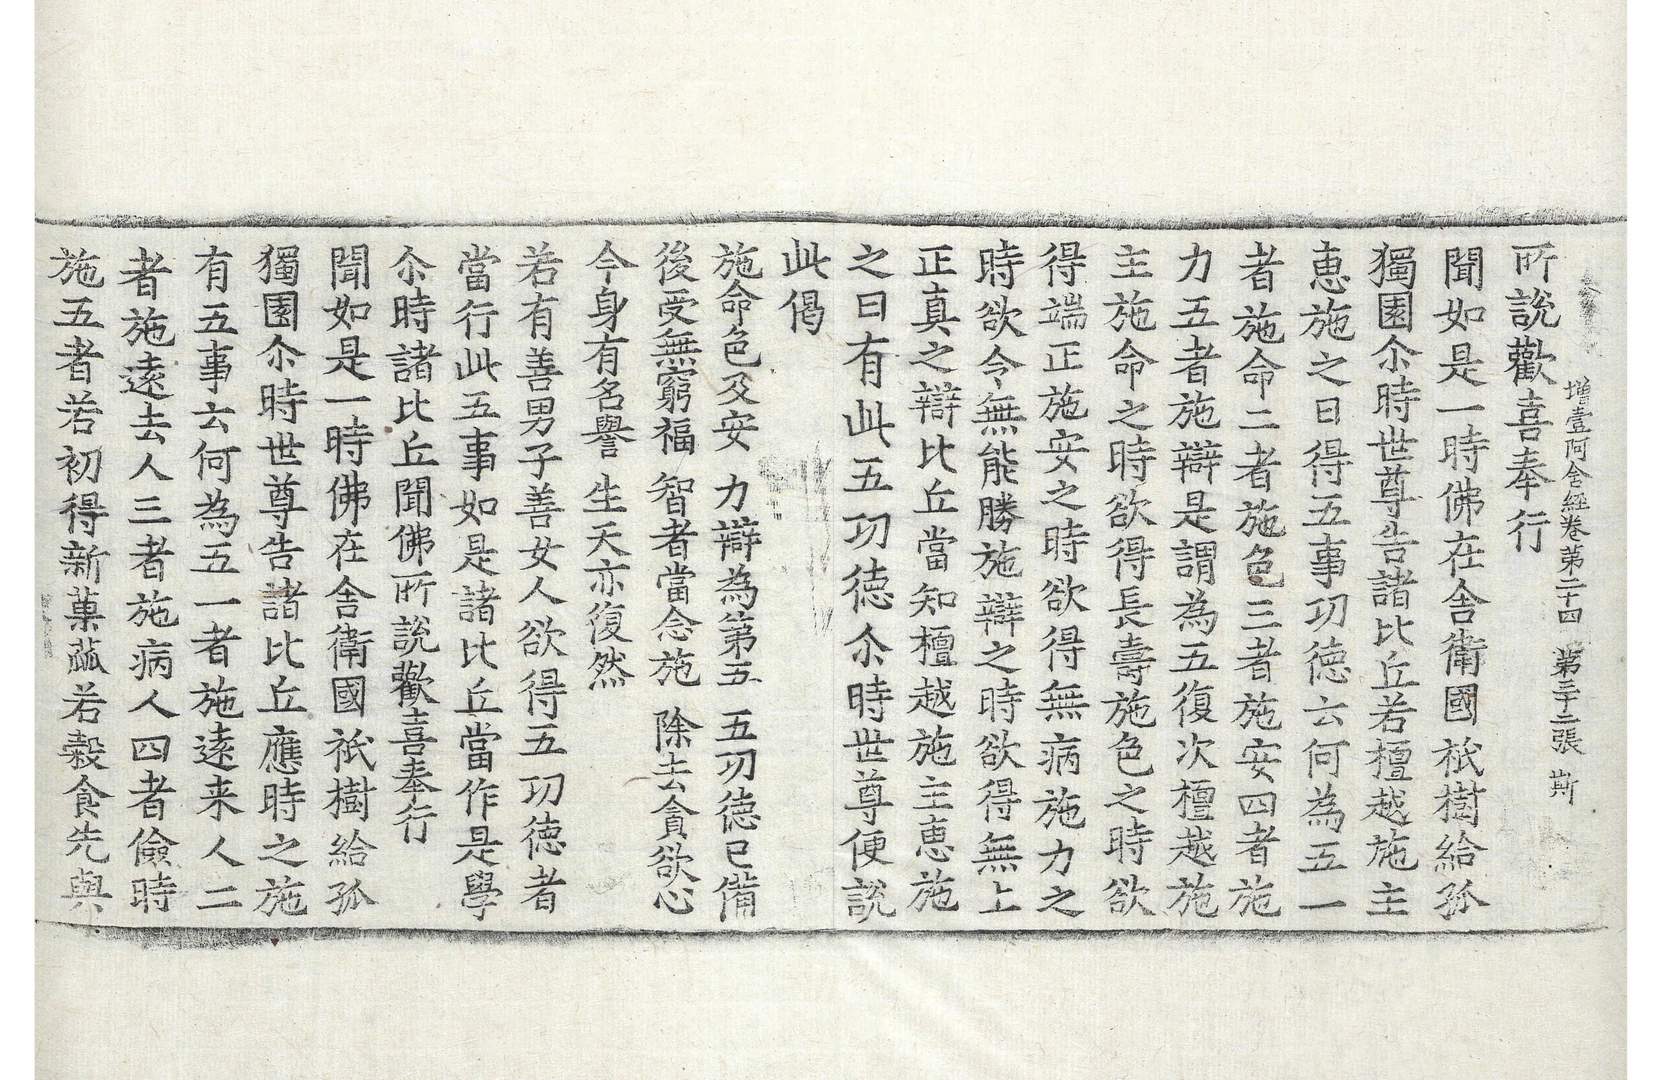 增壹阿含經卷第二十四 第三十二張 斯
所說歡喜奉行
聞如是一時佛在舍衛國祇樹給孤
獨園尒時世尊告諸比丘若檀越施主
惠施之日得五事功德云何為五一
者施命二者施色三者施安四者施
力五者施辯是謂為五復次檀越施
主施命之時欲得長壽施色之時欲
得端正施安之時欲得無病施力之
時欲令無能勝施辯之時欲得無上
正真之辯比丘當知檀越施主惠施
之日有此五功德尒時世尊便說
此偈
施命色及安 力辯為第五 五功德已備
後受無窮福 智者當念施 除去貪欲心
今身有名譽 生天亦復然
若有善男子善女人欲得五功德者
當行此五事如是諸比丘當作是學
尒時諸比丘聞佛所說歡喜奉行
聞如是一時佛在舍衛國祇樹給孤
獨園尒時世尊告諸比丘應時之施
有五事云何為五一者施遠来人二
者施遠去人三者施病人四者儉時
施五者若初得新菓蓏若穀食先與